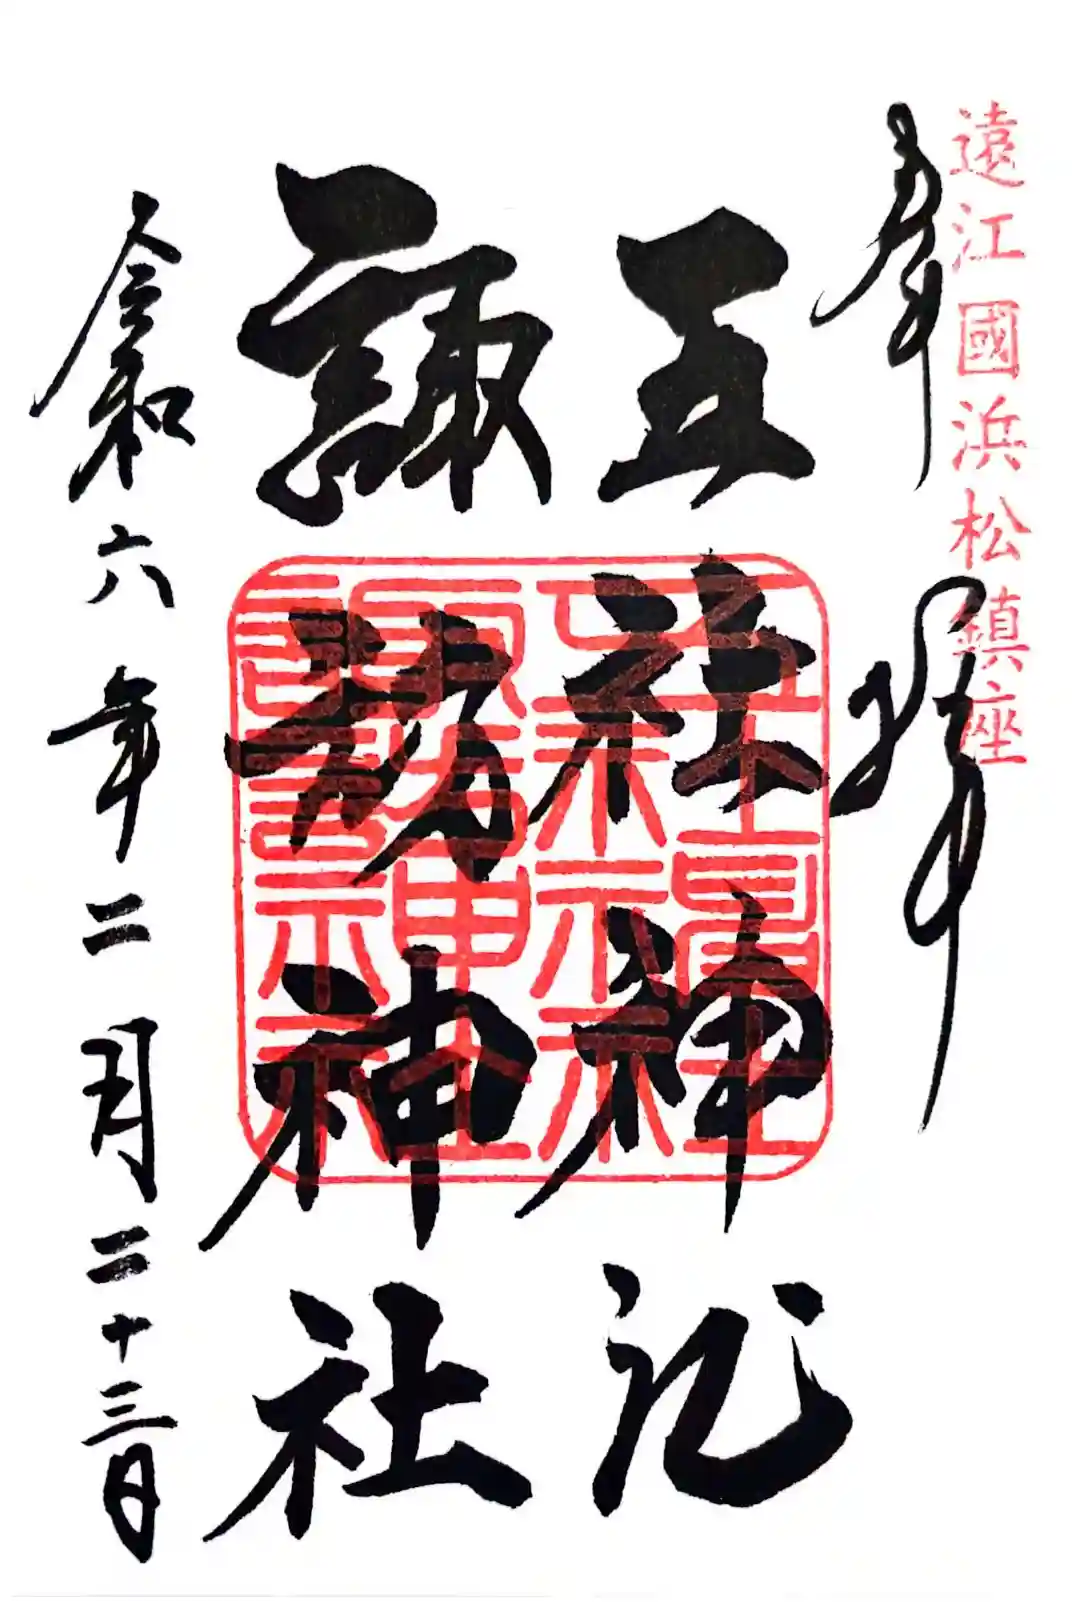 遠江國浜松鎮座
奉拝
五社神社
諏訪神社
五社神社
諏訪神社
令和六年二月二十三日